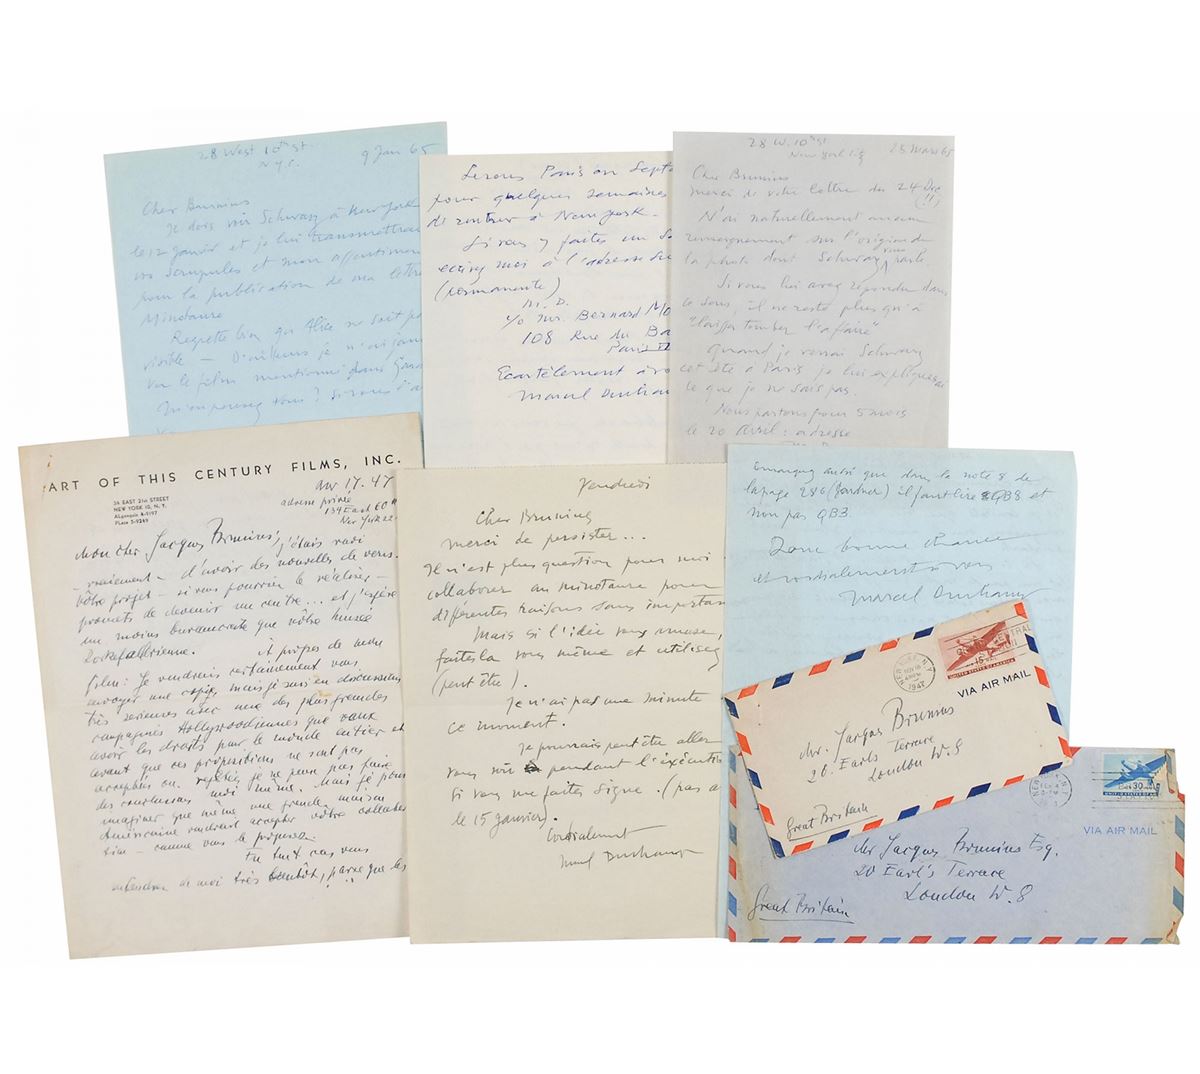 28 West 10th St.
N.Y.C.
9 Jan 65
Cher Brunius
Je dois voir Schwarz à New York
le 12 Janvier et je lui transmettrai
vos scrupules et mon assentiment
pour la publication de ma lettre
Minotaure
Regrette bien que Alice ne soit pas
visible — D'ailleurs je n'ai jamais
vu le film mentionné dans
Serons Paris en Sept
pour quelques semaines
de rentrer à New York.
Si vous y faites un
écrivez moi à l'adresse
(permanente)
M. D.
c/o Mr. Bernard Mo
108 Rue du Ba
Paris
Ecartèlement à vo
Marcel Ducham
28 W. 10th St
New York City
25 Mars 65
Cher Brunius
Merci de votre lettre du 24 Dec
(!!)
N'ai naturellement aucun
renseignement sur l'origine de
la photo dont Schwarz vous parle.
Si vous lui avez répondu dans
ce sens, il ne reste plus qu'à
"laisser tomber l'affaire"
Quand je verrai Schwarz
cet été à Paris je lui expliquerai
ce que je ne sais pas.
Nous partons pour 5 mois
le 20 Avril : adresse
ART OF THIS CENTURY FILMS, INC.
34 EAST 21st STREET
NEW YORK 10, N. Y.
ALgonquin 4-9197
PLaza 5-9249
Nov 17. 47
adresse privée
134 East 60th
New York 22
Mon cher Jacques Brunius, j'étais ravi
vraiement — d'avoir des nouvelles de vous.
Vôtre projet — si vous pourriez le réaliser —
promets de devenir un centre... et j'espère
un moins bureaucrate que vôtre musée
Rockefellerienne. A propos de mon
film: Je voudrais certainement vous
envoyer une copie, mais je suis en discussions
très serieuses avec une des plus grandes
compagnies Hollywoodiennes que veux
avoir les droits pour le monde entier et
avant que ces propositions ne sont pas
acceptés ou rejetés je ne peux pas faire
des conclusions moi même. Mais je puis
imaginer que même une grande maison
Américaine voudrait accepter votre collabo
tion — comme vous le proposez.
En tout cas vous
entendrez de moi très bientôt, parce que les
Vendredi
Cher Brunius
Merci de persister...
Il n'est plus question pour moi
collaborer au minotaure pour
différentes raisons sans importan
Mais si l'idée vous amuse,
faites la vous même et utilisez
(peut être).
Je n'ai pas une minute
ce moment.
Je pourrais peut être aller
vous voir pendant l'exécution
Si vous me faites signe. (pas a
le 15 janvier).
Cordialement
Marcel Duchamp
Remarquez aussi que dans la note 8 de
la page 286 (Gardner) il faut lire QB8 et
non pas QB3.
Donc bonne chance
et cordialement à vous
Marcel Duchamp
NEW YORK, N.Y.
NOV 18
1947
15¢
UNITED STATES OF AMERICA
VIA AIR MAIL
Mr. Jacques Brunius
20. Earls Terrace
London W. 8
Great Britain
30¢
VIA AIR MAIL
Mr Jacques Brunius Esq.
20 Earl's Terrace
London W. 8
Great Britain